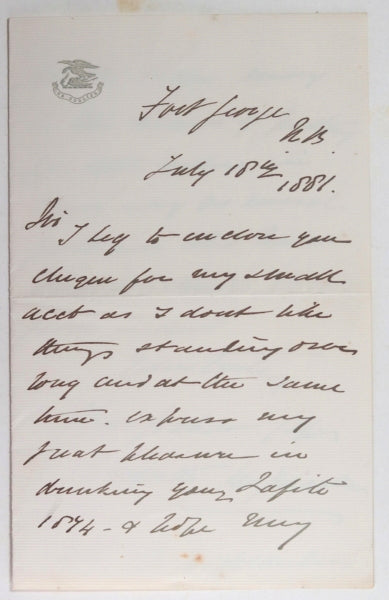 Fort George
N.B.
July 18th
1881.
Sir
I beg to enclose you
cheque for my small
acct as I dont like
things standing over
long and at the same
time. express my
great pleasure in
drinking your Lafite
1874 - & hope